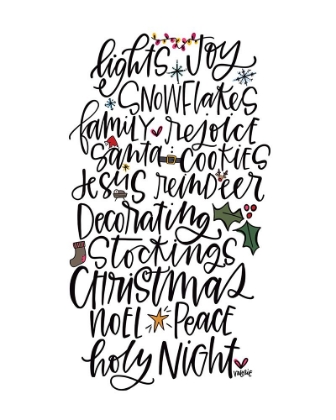 lights Joy
SNOWFlakes
family rejoice
santa cookies
Jesus reindeer
Decorating
Stockings
Christmas
NOEL Peace
holy NIGHt